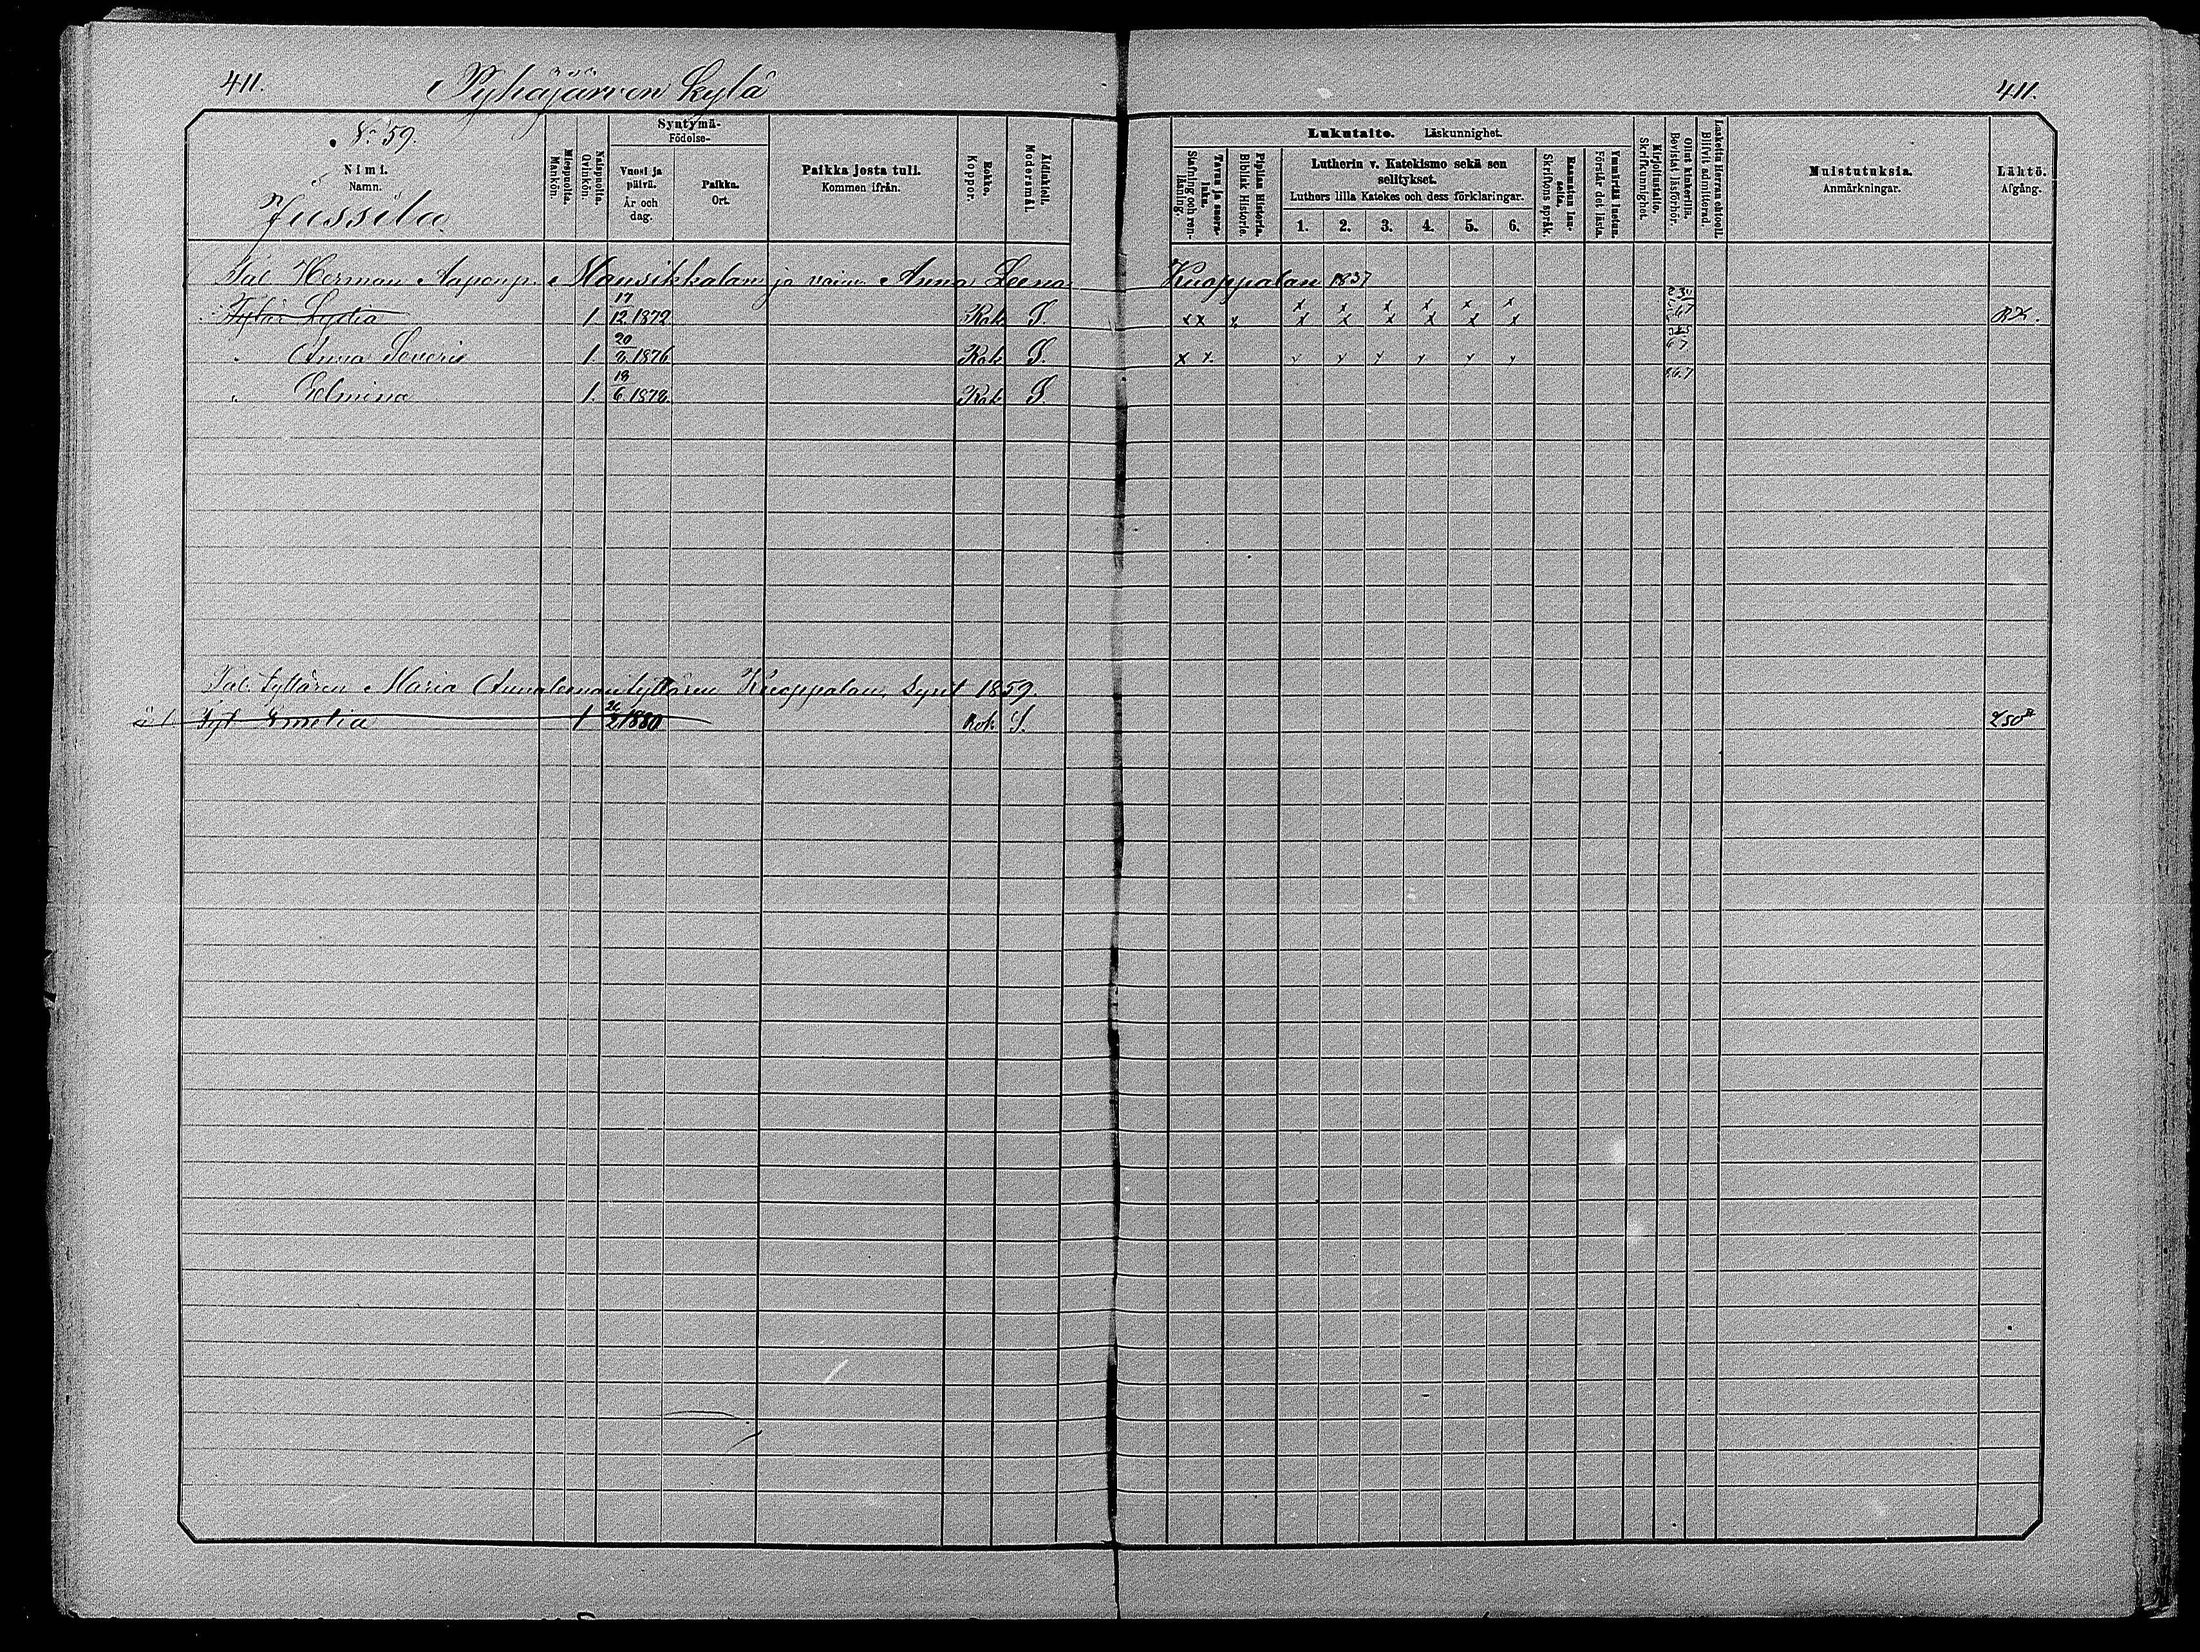 411. Pyhäjärven kylä 411.
No 59.
Nimi.
Namn.
Jussila
Miespuolia.
Mankön.
Naispuolia.
Qvinkön.
Syntymä-
Födelse-
Vuosi ja päivä.
År och dag.
Paikka.
Ort.
Paikka josta tuli.
Kommen ifrån.
Rokko.
Koppor.
Äidinkieli.
Modersmål.
Lukutaito. Läskunnighet.
Tavuu ja suora-luku.
Stafning och ren-läsning.
Piplian Historia.
Biblisk Historie.
Lutherin v. Katekismo sekä sen selitykset.
Luthers lilla Katekes och dess förklaringar.
1. 2. 3. 4. 5. 6.
Raamatun lau-seita.
Skriftens språk.
Ymmärtää luetun.
Förstår det lästa.
Kirjoitustaito.
Skrifkunnighet.
Ollut kinkerillä.
Bevistat läsförhör.
Laskettu Herran ehtool.
Blifvit admitterad.
Muistutuksia.
Anmärkningar.
Lähtö.
Afgång.
Tal. Herman Aaponp. Mansikkalan ja vaim. Anna Leena Kuoppalan 1837
Tytär Lydia 1 17/12 1872 Rok S. x x x x x x x x x x x x x x x RK.
" Anna Severi 1 20/2 1876 Rok S. x x x x x x x x
" Elmina 1. 18/6 1878 Rok S.
Tal. tyttären Maria Annaleenan tyttären Kuoppalan, synt 1859.
ä 1 Tyt Emelia 1 26/2 1880 Rok S. 250